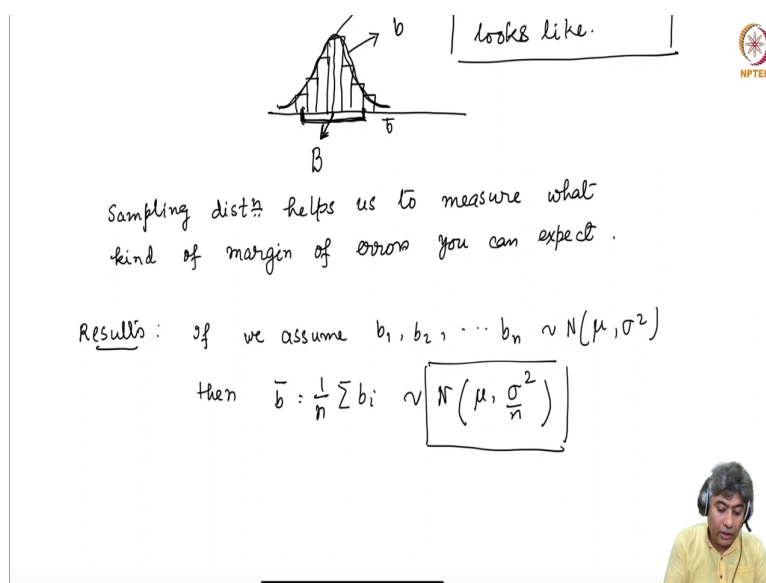 b
looks like.
NPTEL
b̄
B
Sampling distn helps us to measure what
kind of margin of error you can expect.
Results: If we assume b₁, b₂, ... bₙ ~ N(μ, σ²)
then b̄ = 1/n Σ bᵢ ~ N(μ, σ²/n)